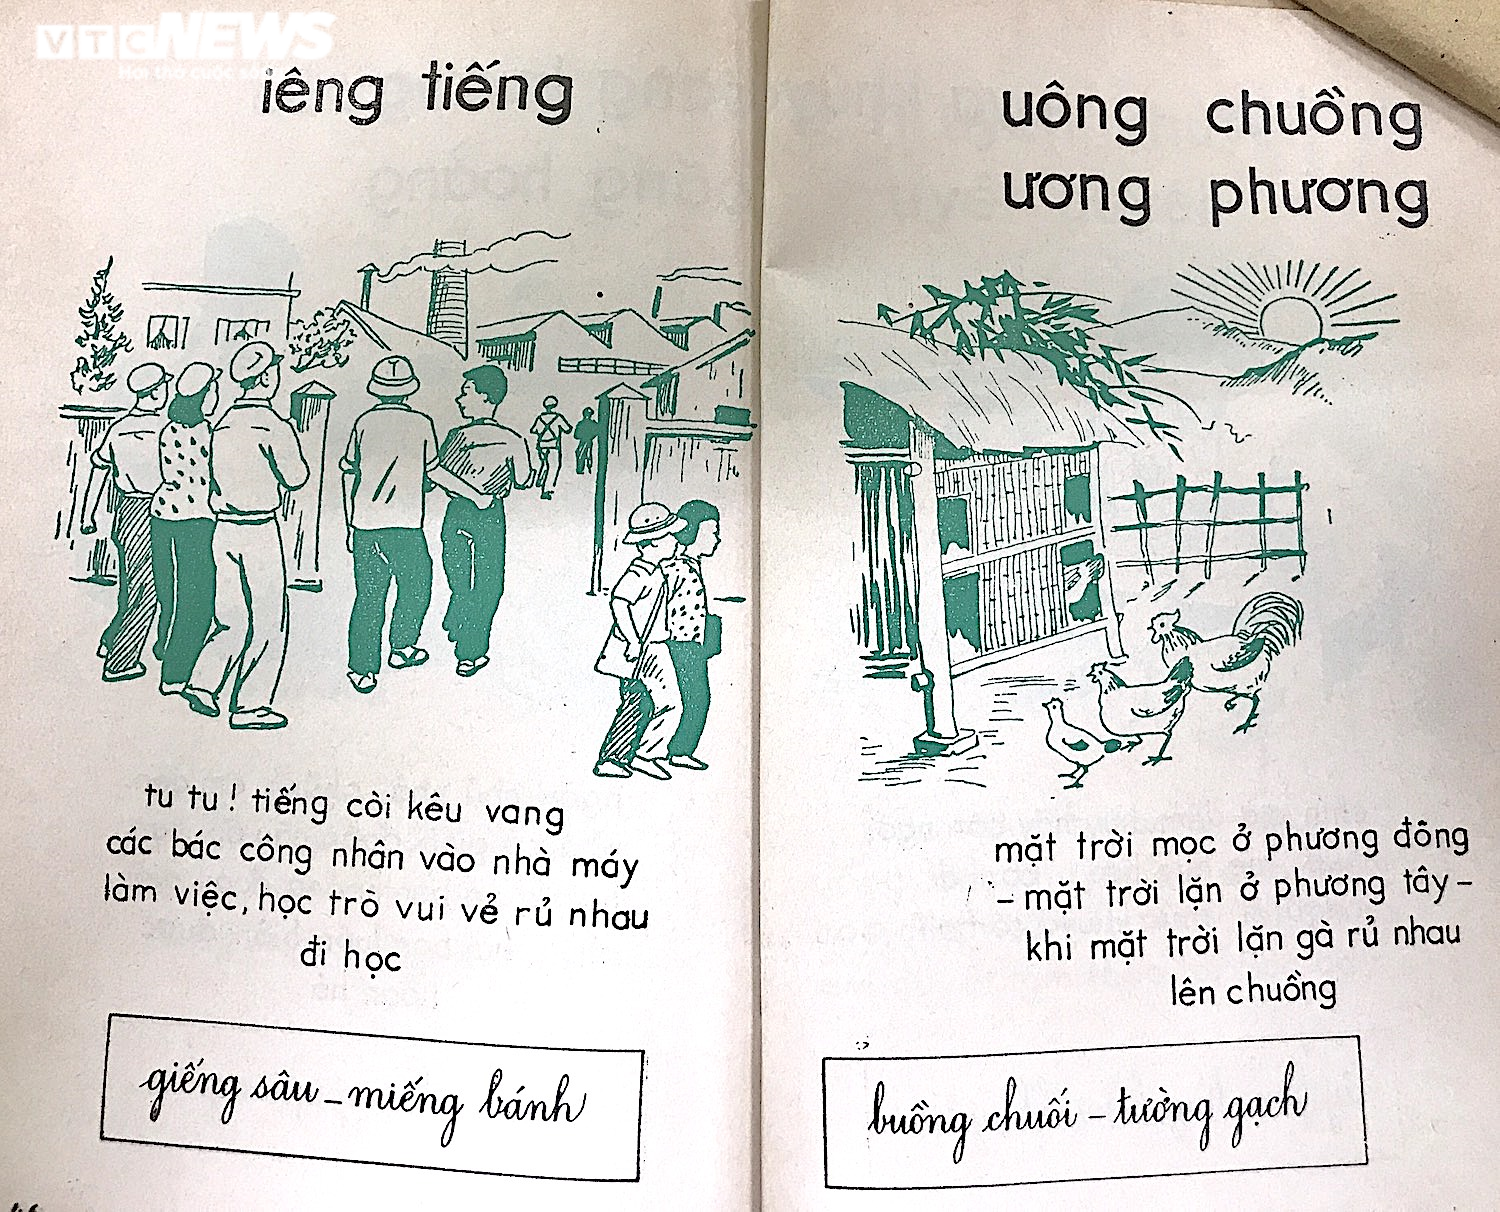 VTC NEWS
Hơi thở cuộc sống
iêng tiếng
tu tu! tiếng còi kêu vang
các bác công nhân vào nhà máy
làm việc, học trò vui vẻ rủ nhau
đi học
giếng sâu – miếng bánh
uông chuồng
ương phương
mặt trời mọc ở phương đông
– mặt trời lặn ở phương tây –
khi mặt trời lặn gà rủ nhau
lên chuồng
buồng chuối – tường gạch